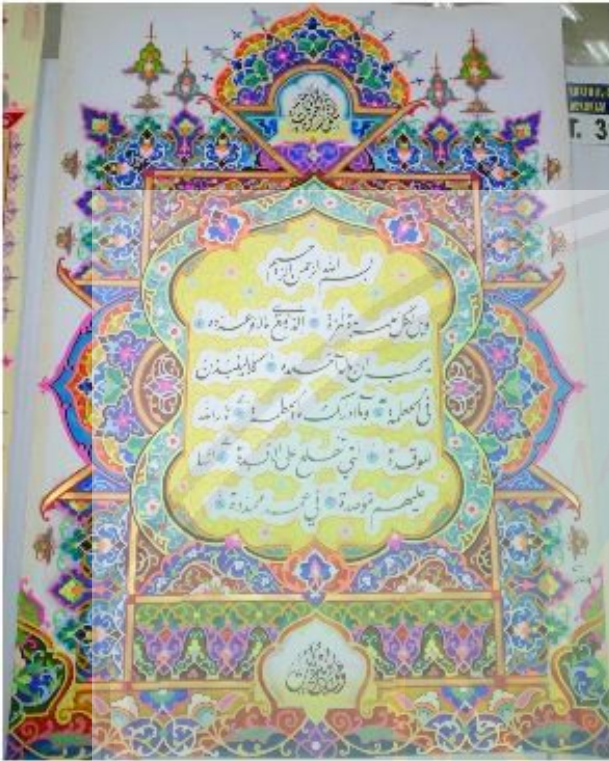 بسم الله الرحمن الرحيم
ويل لكل همزة لمزة الذي جمع مالا وعدده
يحسب ان ماله اخلده كلا لينبذن
في الحطمة وما ادرىك ما الحطمة نار الله
الموقدة التي تطلع على الافـٔدة انها
عليهم موصدة في عمد ممددة